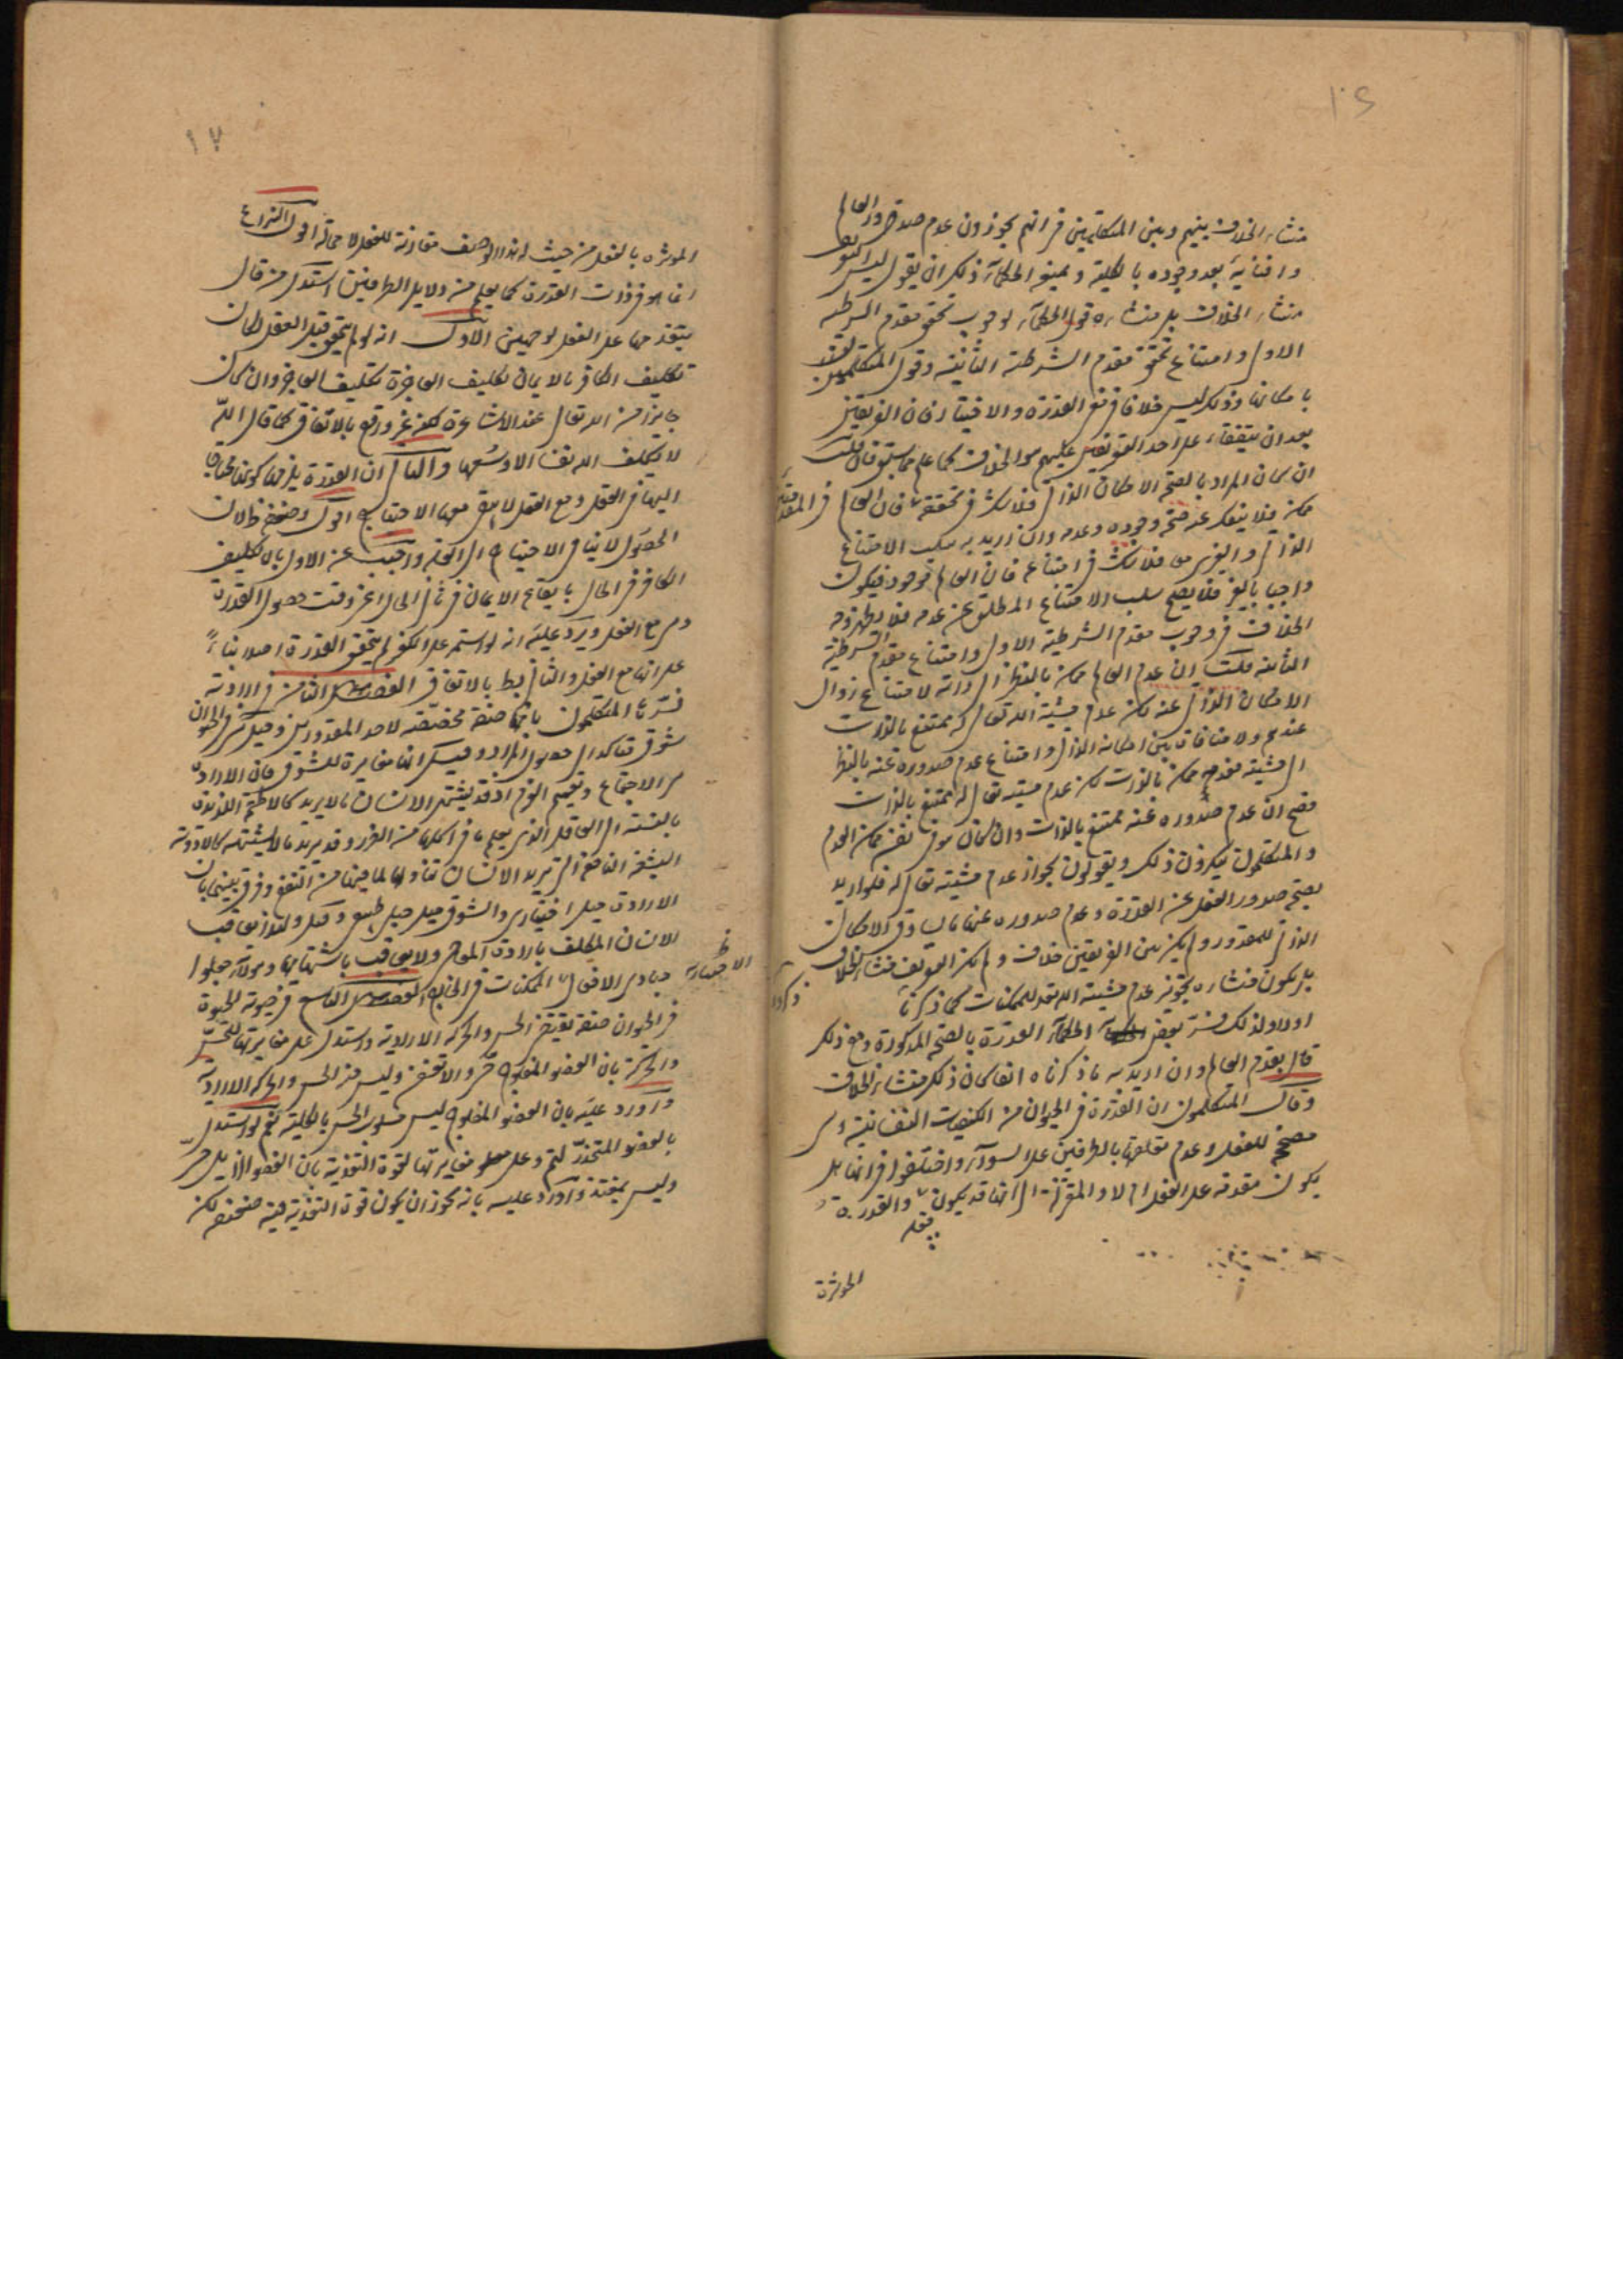 منشاء الخلاف بينهم وبين المتكلمين في انهم يجوزون عدم صدور العالم
وافنائه بعد وجوده بالكلية ويمنع الحكماء ذلك ان يقول ليس
منشاء الخلاف بل منشاءه قول الحكماء لوجوب تحقق مقدم الشرطية
الاولى وامتناع تحقق مقدم الشرطية الثانية وقول المتكلمين
بامكانها وذلك ليس خلافا في القدرة والاختيار فان الفريقين
بعد ان يتفقا على احد التعريفين عليهم الخلاف كما علم مما سبق فان قلت
ان كان المراد بالصحة الامكان الذاتي فلا شك في تحققه فان العالم
ممكن فلا ينفك عنه صحة وجوده وعدمه وان اريد به سلب الامتناع
الذاتي والغيري معا فلا شك في امتناعه فان العالم موجود فيكون
واجبا بالغير فلا يصح سلب الامتناع المطلق عن عدمه فلا يظهر وجه
الخلاف في وجوب مقدم الشرطية الاولى وامتناع مقدم الشرطية
الثانية قلت ان عدم العالم ممكن بالنظر الى ذاته لامتناع زوال
الامكان الذاتي عنه لكن عدم مشية الله تعالى له ممتنع بالذات
عندهم ولا منافاة بين امكانه الذاتي وامتناع عدم صدوره عنه بالنظر
الى مشيته فعدمه ممكن بالذات لكن عدم مشيته تعالى له ممتنع بالذات
فصح ان عدم صدوره عنه ممتنع بالذات وان كان هو في نفسه ممكن العدم
والمتكلمون ينكرون ذلك ويقولون بجواز عدم مشيته تعالى له فلو اريد
بصحة صدور الفعل عن القدرة وعدم صدوره عنها ما يساوق الامكان
الذاتي للمقدور لم يكن بين الفريقين خلاف ولم يكن التعريف منشاء للخلاف
بل يكون منشاءه تجويز عدم مشية الله تعالى للممكنات كما ذكرنا
اولا ولذلك فسر بعض الحكماء القدرة بالصحة المذكورة ومع ذلك
قال بقدم العالم وان اريد به ما ذكرناه انفا كان ذلك منشاء الخلاف
وقال المتكلمون ان القدرة في الحيوان من الكيفيات النفسانية وهي
مصحح للفعل وعدم تعلقها بالطرفين على السواء واختلفوا في انها هل
يكون مقدمة على الفعل ام لا والقدرة
المؤثرة
١٧
المؤثرة بالفعل من حيث انها بهذا الوصف مقارنة للفعل لا محالة اقول النزاع
انما هو في ذات القدرة كما يعلم من دلايل الطرفين استدل من قال
بتقدمها على الفعل لوجهين الاول انه لو لم يتحقق قبل الفعل لكان
تكليف الكافر بالايمان تكليف العاجز وتكليف العاجز وان كان
جايزا من الله تعالى عند الاشاعرة لكنه غير واقع بالاتفاق كما قال الله
لا يكلف الله نفسا الا وسعها والثاني ان القدرة يلزمها كونها محتاجا
اليها في الفعل ومع الفعل لا يبقى معها الاحتياج اقول وضعفه ظ لان
الحصول لا ينافي الاحتياج الى آلته واجيب عن الاول بان تكليف
الكافر في الحال بايقاع الايمان في ثاني الحال اعني وقت حصول القدرة
وهي مع الفعل ويرد عليه انه لو استمر على الكفر لم يتحقق القدرة اصلا بناء
على انها مع الفعل والثاني بط بالاتفاق الفصل الثامن في الارادة
فسرها المتكلمون بانها صفة مخصصة لاحد المقدورين وقيل هي في الحيوان
شوق متاكد الى حصول المراد وقيل انها مغايرة للشوق فان الارادة
هي الاجماع وتصميم العزم اذ قد يشتهي الانسان ما لا يريد كالاطعمة اللذيذة
بالنسبة الى العاقل الذي يعلم ما في اكلها من الضرر وقد يريد ما لا يشتهيه كالادوية
البشعة النافعة التي يريد الانسان تناولها لما فيها من النفع وفرق بينهما بان
الارادة ميل اختياري والشوق ميل جبلي طبيعي وقيل ولهذا يعاقب
الانسان المكلف بارادة المعاصي ولا يعاقب باشتهائها وهؤلاء جعلوا
مبادي الافعال الاختيارية
في الحيوان صفة يقتضي الحس والحركة الارادية واستدل على مغايرتها للحس
والحركة بان العضو المفلوج حي والا لتعفن وليس فيه الحس والحركة الارادية
واورد عليه بان العضو المفلوج ليس مسلوب الحس بالكلية نعم لو استدل
بالعضو المتخدر لتم وعلى مغايرتها لقوة التغذية بان العضو الذابل حي
وليس بمغتذ واورد عليه بانه يجوز ان يكون قوة التغذية فيه ضعيفة لكن